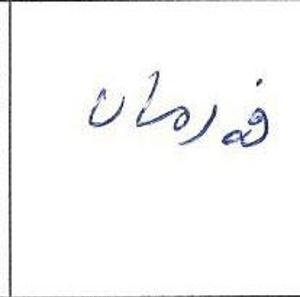 فەرمان